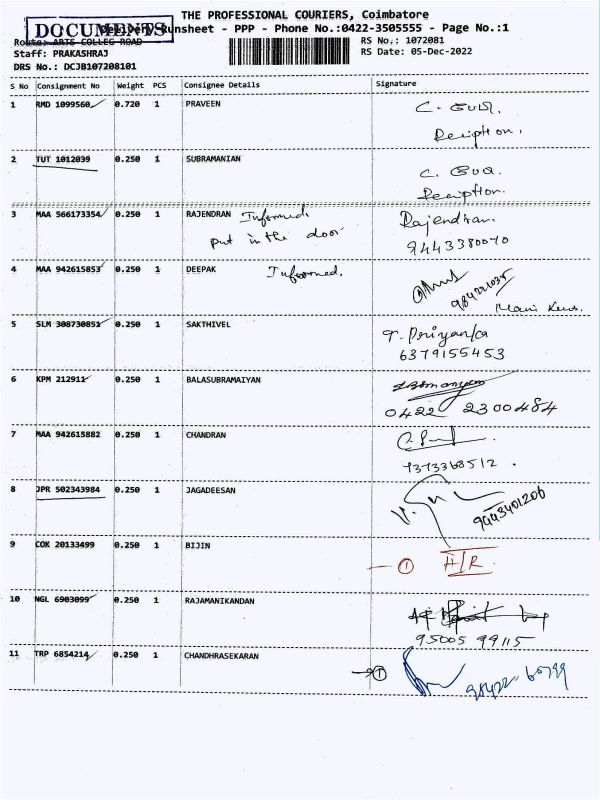 THE PROFESSIONAL COURIERS, Coimbatore
DOCUMENTS
Delivery Runsheet - PPP - Phone No.:0422-3505555 - Page No.:1
Route: ARTS COLLEG ROAD
RS No.: 1072081
Staff: PRAKASHRAJ
RS Date: 05-Dec-2022
DRS No.: DCJB107208101
S No Consignment No Weight PCS Consignee Details Signature
1 RMD 1099560 0.720 1 PRAVEEN
Reciption.
2 TUT 1012039 0.250 1 SUBRAMANIAN
Reciption.
3 MAA 566173354 0.250 1 RAJENDRAN Informed. Rajendran.
put in the door 9443380070
4 MAA 942615853 0.250 1 DEEPAK Informed.
5 SLM 308730851 0.250 1 SAKTHIVEL T. Priyanka
6379155453
6 KPM 212911 0.250 1 BALASUBRAMAIYAN
0422 2300484
7 MAA 942615882 0.250 1 CHANDRAN
9373368512.
8 JPR 502343984 0.250 1 JAGADEESAN
9443401206
9 COK 20133499 0.250 1 BIJIN 1 A/R
10 NGL 6903099 0.250 1 RAJAMANIKANDAN
95005 99115
11 TRP 6854214 0.250 1 CHANDHRASEKARAN 1
98422-60799